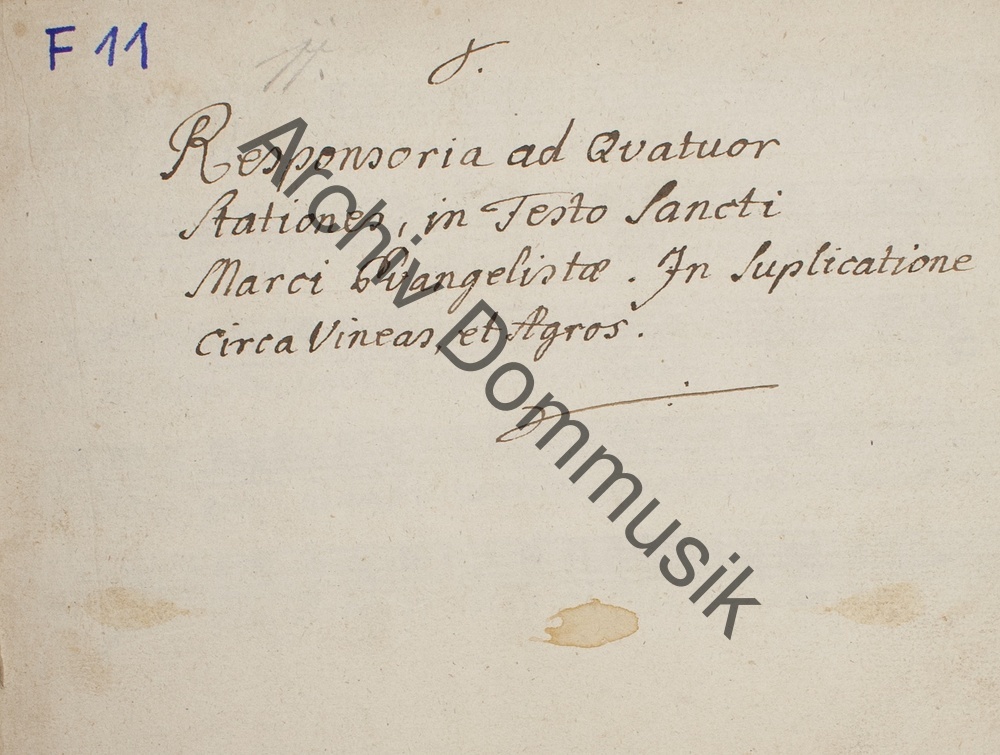 F 11
11.
Responsoria ad Qvatuor
Stationes, in Festo Sancti
Marci Evangelistæ. In Suplicatione
circa Vineas, et Agros.
Archiv Dommusik